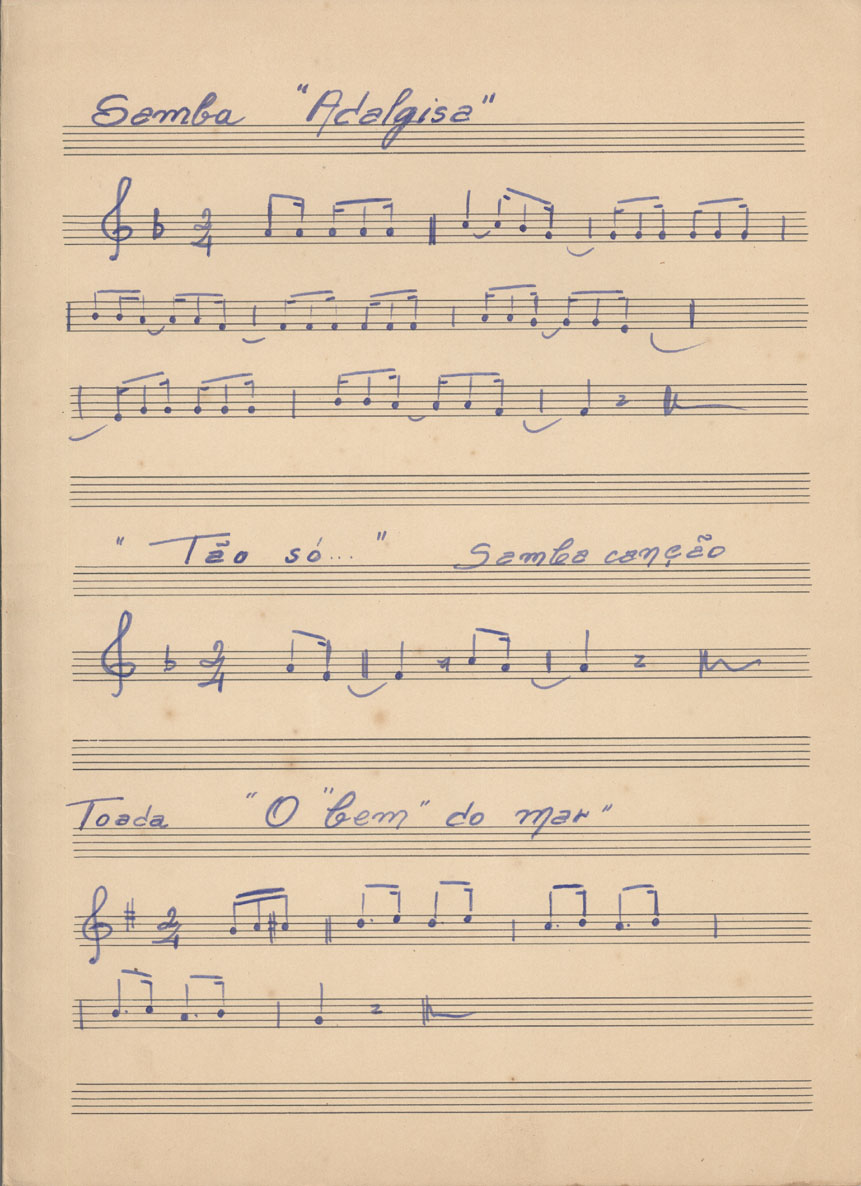 Samba "Adalgisa"
2
4
"Tão só..." Samba canção
2
4
Toada "O "bem" do mar"
2
4